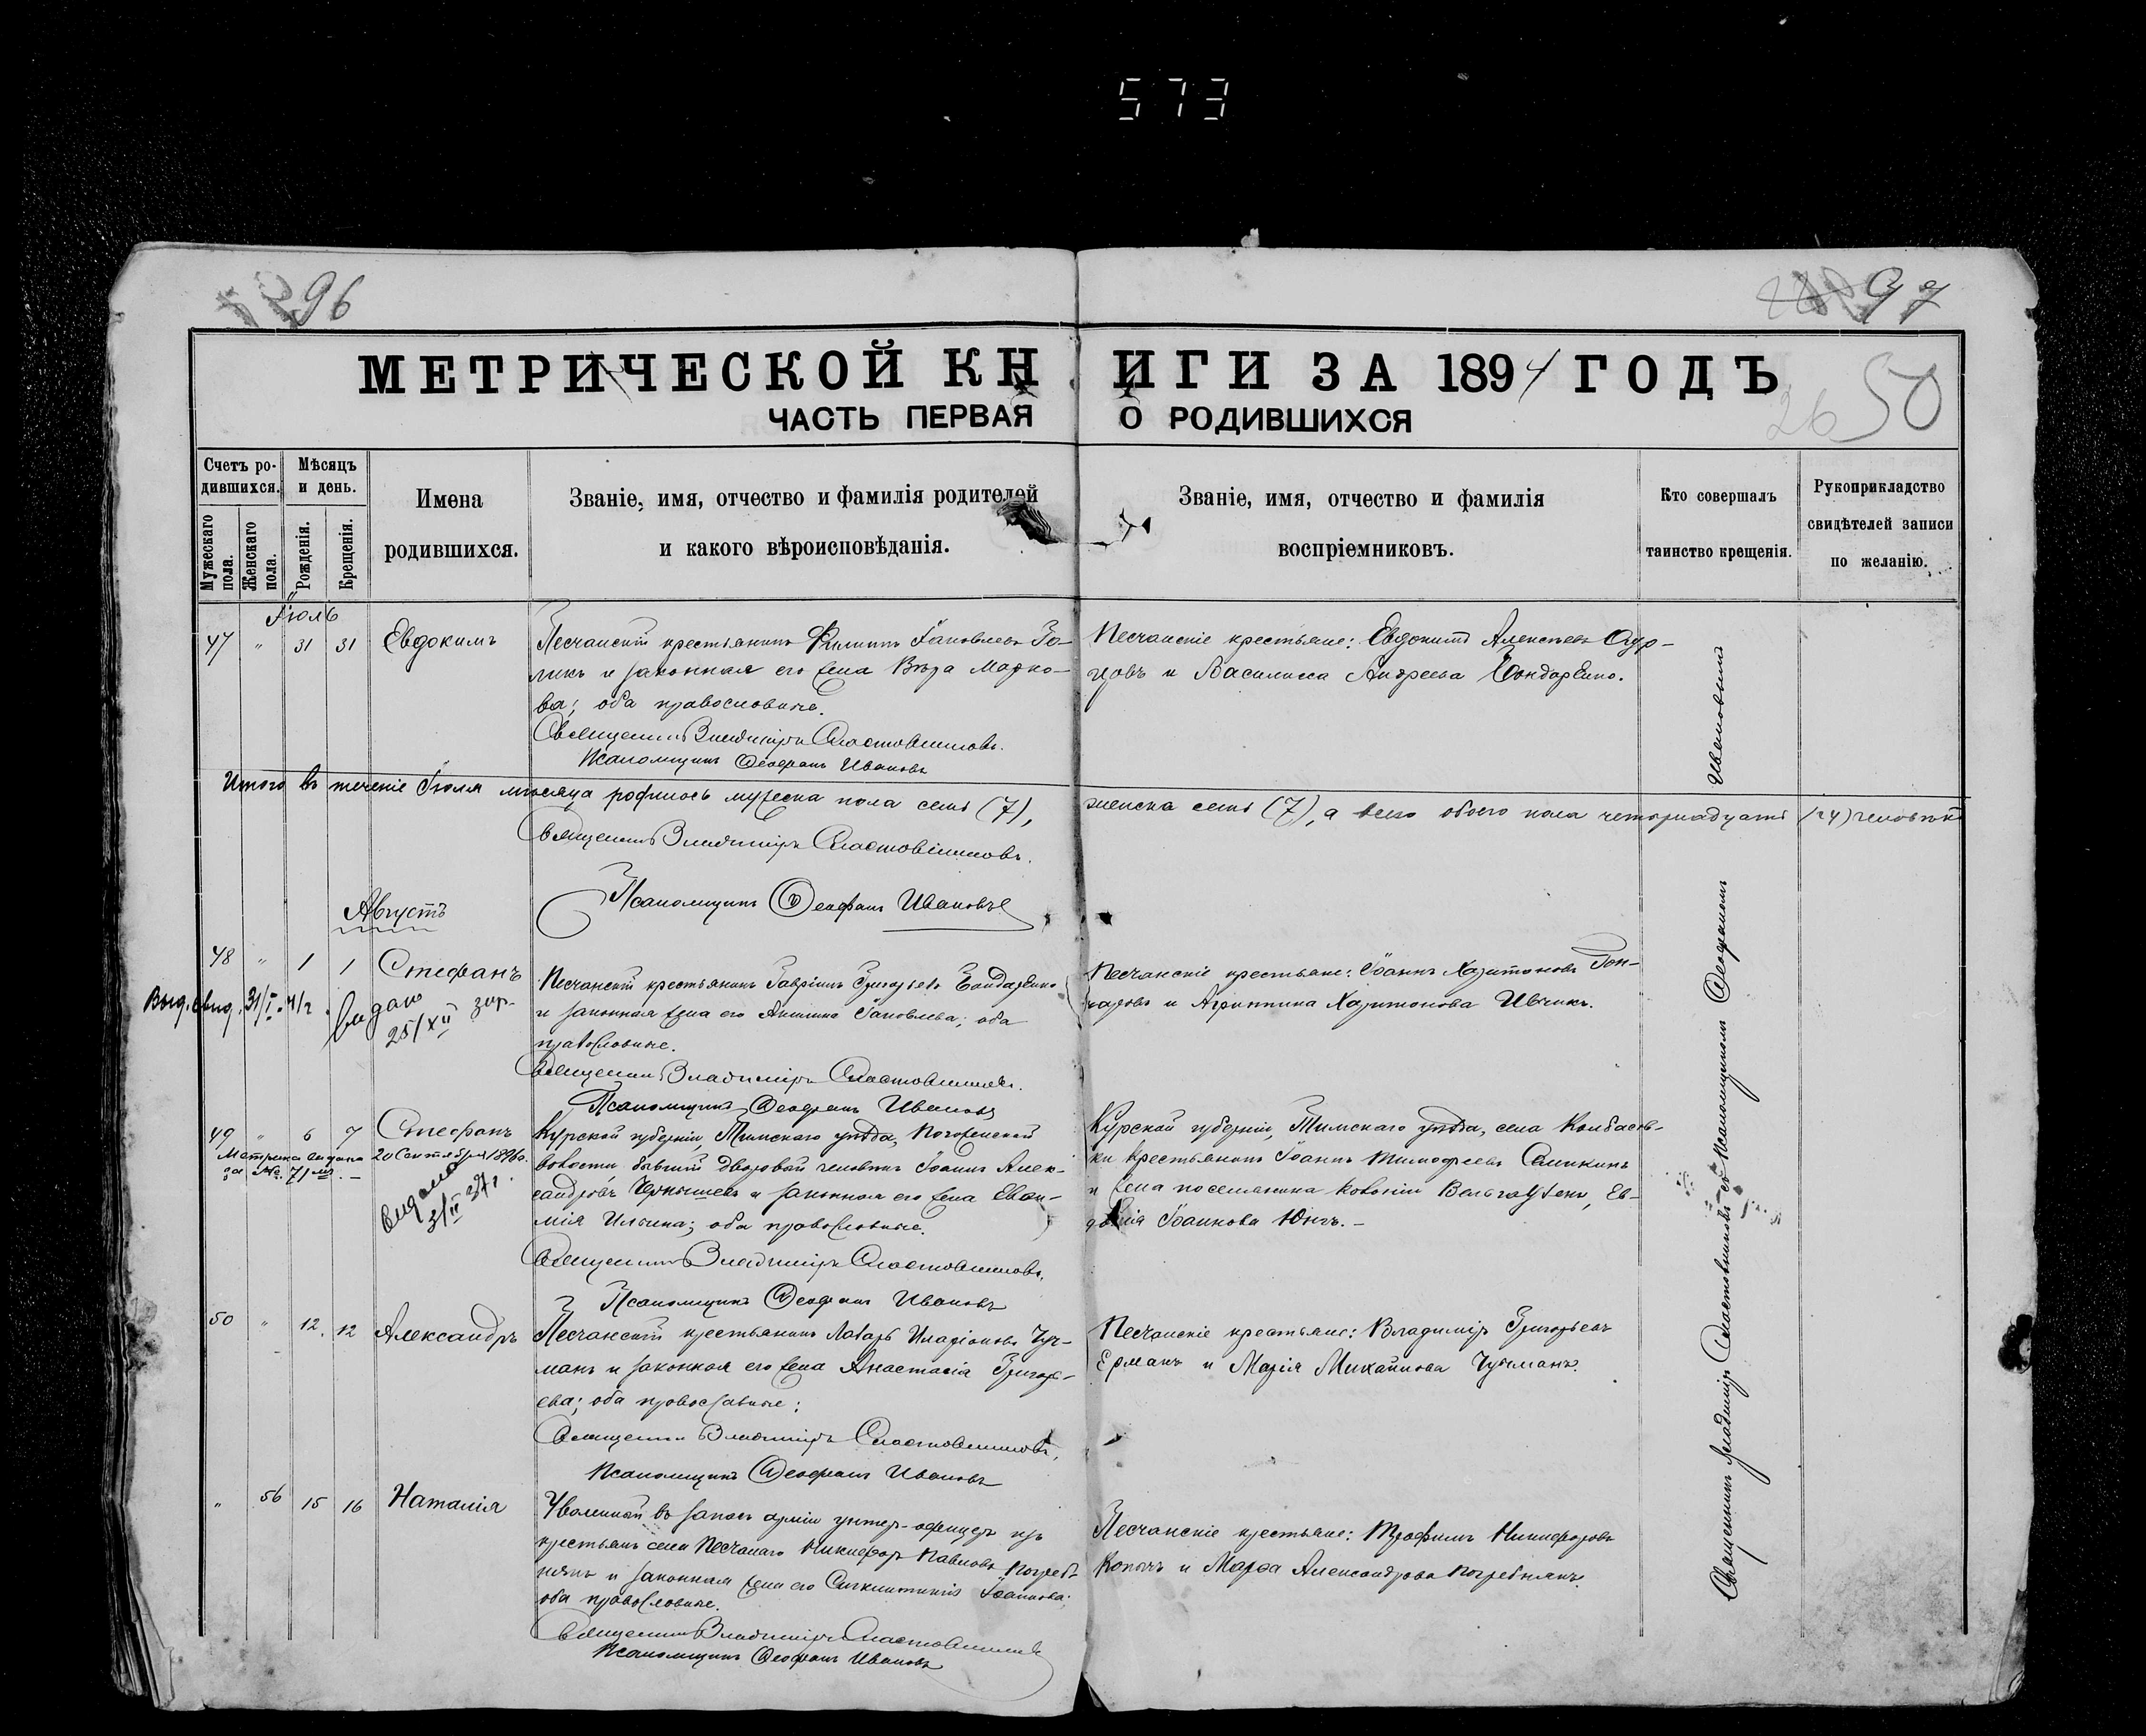 573
96
97
МЕТРИЧЕСКОЙ КНИГИ ЗА 1894 ГОДЪ
26 50
ЧАСТЬ ПЕРВАЯ О РОДИВШИХСЯ
Счетъ родившихся.
Мужескаго пола.
Женскаго пола.
Мѣсяцъ и день.
Рожденія.
Крещенія.
Имена родившихся.
Званіе, имя, отчество и фамилія родителей
и какого вѣроисповѣданія.
Званіе, имя, отчество и фамилія
воспріемниковъ.
Кто совершалъ
таинство крещенія.
Рукоприкладство
свидѣтелей записи
по желанію.
Іюль
47 " 31 31 Евдокимъ
Песчанскій крестьянинъ Филиппъ Іаковлевъ Го-
ликъ и законная его жена Вѣра Марко-
ва; оба православные.
Священникъ Владиміръ Сластовниковъ.
Псаломщикъ Ѳеофанъ Ивановъ
Песчанскіе крестьяне: Евдокимъ Алексѣевъ
и Василисса Андреева Бондаренко.
Итого въ теченіе Іюля мѣсяца родилось мужеска пола семь (7),
женска семь (7), а всего обоего пола четырнадцать (14) человѣкъ
Священникъ Владиміръ Сластовниковъ.
Псаломщикъ Ѳеофанъ Ивановъ
Августъ
48 " 1 1 Стефанъ
Выд. свид. 31/I
выдано 25/XII
Песчанскій крестьянинъ Гавріилъ Григорьевъ Бондаренко
и законная жена его Акилина Іаковлева; оба
православные.
Священникъ Владиміръ Сластовниковъ.
Псаломщикъ Ѳеофанъ Ивановъ
Песчанскіе крестьяне: Іоаннъ Харитоновъ Гон-
чаровъ и Агриппина Харитонова Ивчикъ.
49 " 6 7 Стефанъ
Метрика выдана 20 Сентября 1896 г.
за № 71 м.
выдана
Курской губерніи, Тимскаго уѣзда,
волости бывшій дворовый человѣкъ Іоаннъ Алек-
сандровъ Чернышевъ и законная его жена Евѳи-
мія Ильина; оба православные.
Священникъ Владиміръ Сластовниковъ.
Псаломщикъ Ѳеофанъ Ивановъ
Курской губерніи, Тимскаго уѣзда, села Колбасов-
ки крестьянинъ Іоаннъ Тимофеевъ
и жена поселянина колоніи Ев-
докія Іоаннова Юнгъ.
50 " 12 12 Александръ
Песчанскій крестьянинъ Лазарь Иларіоновъ Чуч-
манъ и законная его жена Анастасія Григорь-
ева; оба православные:
Священникъ Владиміръ Сластовниковъ,
Псаломщикъ Ѳеофанъ Ивановъ
Песчанскіе крестьяне: Владиміръ Григорьевъ
Ерманъ и Марія Михайлова Чучманъ.
" 56 15 16 Наталія
Уволенный въ запасъ арміи унтеръ-офицеръ изъ
крестьянъ села Песчанаго Никифоръ Павловъ Погреб-
някъ и законная жена его Синклитикія Іоаннова;
оба православные.
Священникъ Владиміръ Сластовниковъ
Псаломщикъ Ѳеофанъ Ивановъ
Песчанскіе крестьяне: Трофимъ Никифоровъ
и Марѳа Александрова Погребнякъ.
Священникъ Владиміръ Сластовниковъ съ Псаломщикомъ Ѳеофаномъ Ивановымъ